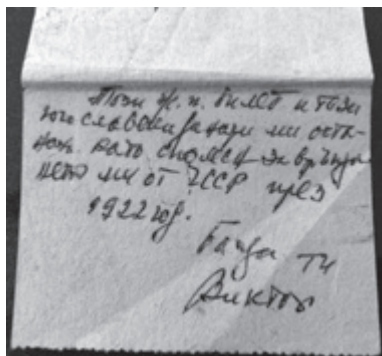 Този ж. п. билет и този
югославски динари ми оста-
наж. като спомен за връща
нето ми от ЧССР през
1922 год.
Баща ти
Виктор